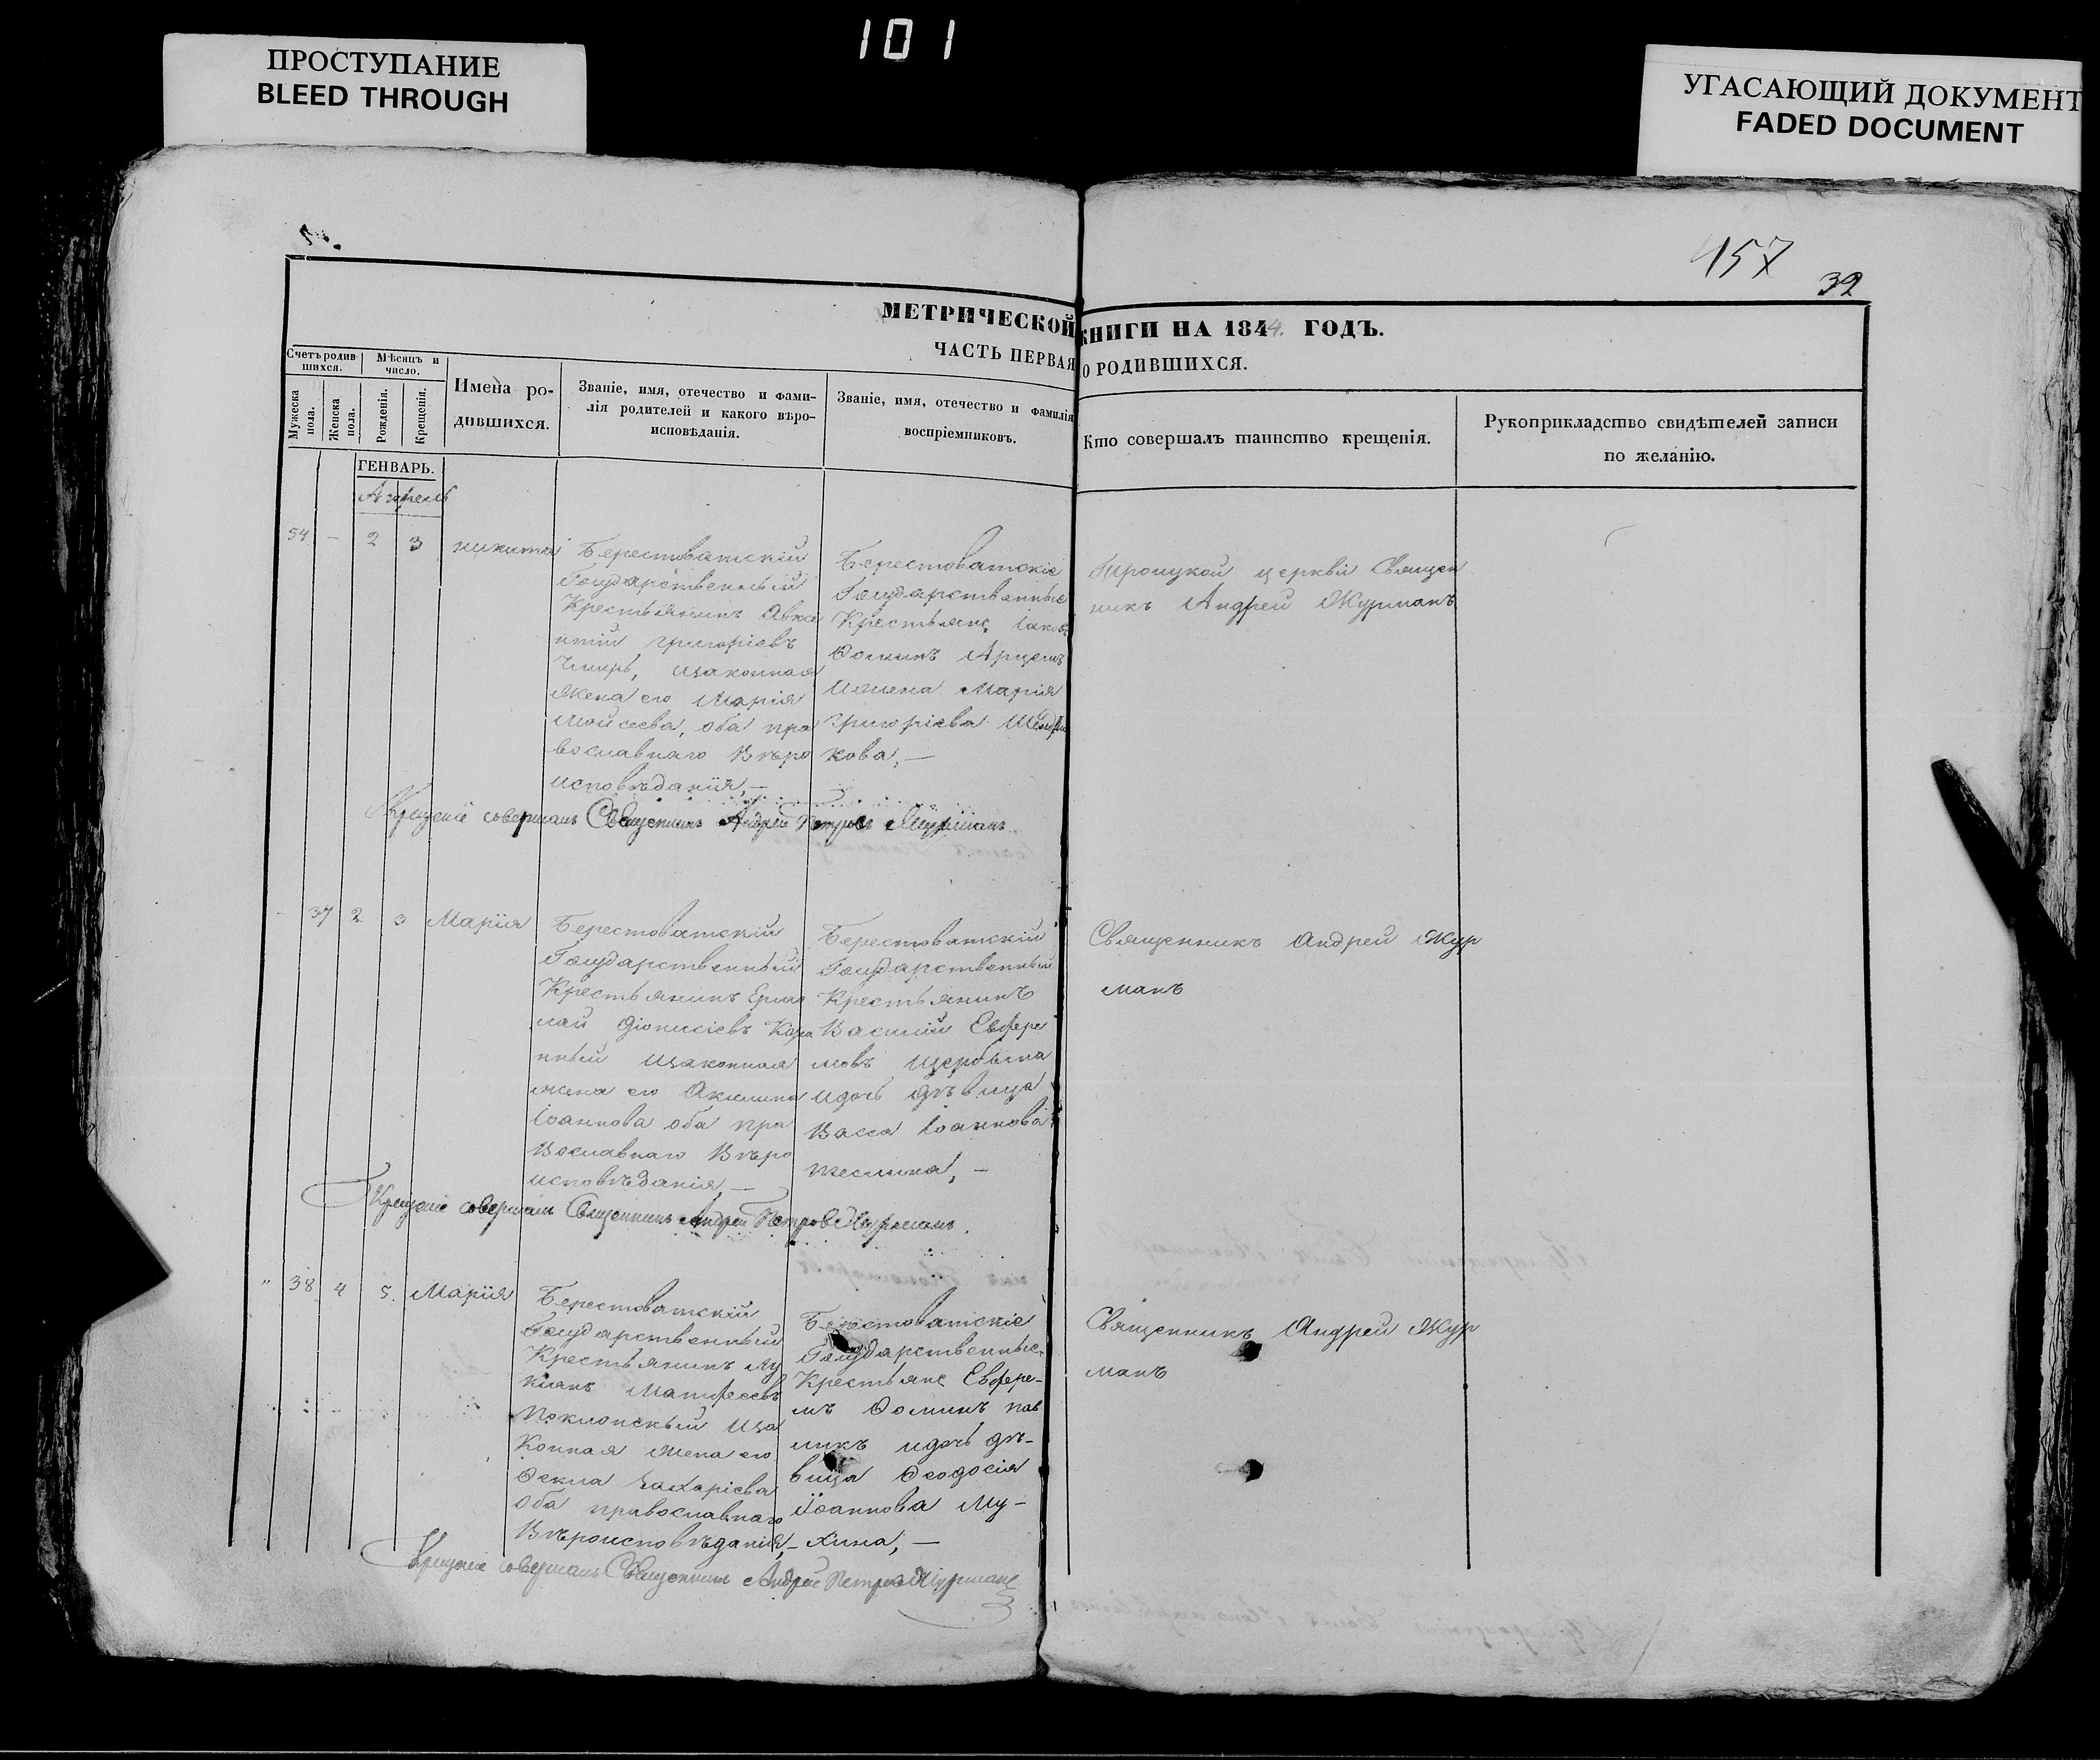 101
ПРОСТУПАНИЕ
BLEED THROUGH
УГАСАЮЩИЙ ДОКУМЕНТ
FADED DOCUMENT
457
32
МЕТРИЧЕСКОЙ КНИГИ НА 1844. ГОДЪ.
ЧАСТЬ ПЕРВАЯ О РОДИВШИХСЯ.
Счетъ родив-
шихся.
Мѣсяцъ и
число.
Мужеска
пола.
Женска
пола.
Рожденія.
Крещенія.
Имена ро-
дившихся.
Званіе, имя, отечество и фами-
лія родителей и какого вѣро-
исповѣданія.
Званіе, имя, отечество и фамилія
воспріемниковъ.
Кто совершалъ таинство крещенія.
Рукоприкладство свидѣтелей записи
по желанію.
ГЕНВАРЬ.
Апрель
54 — 2 3 никита
Берестоватскій
Государственный
Крестьянинъ Авксе
нтій григоріевъ
Чмирь, изаконная
жена его Марія
Мойсеева, оба пра
вославнаго Вѣро
исповѣданія,—
Берестоватскіе
Государственные
Крестьяне, Іаковъ
Ѳоминъ
ижена Марія
григоріева
кова,—
Троицкой церкви Священ
никъ Андрей Журманъ
Крещеніе совершалъ Священникъ Андрей Петровъ Журманъ
— 37 2 3 Марія
Берестоватскій
Государственный
Крестьянинъ Ермо
лай Діонисіевъ
изаконная
жена его Акилина
Іоаннова оба пра
Вославнаго Вѣро
исповѣданія,—
Берестоватскій
Государственный
Крестьянинъ
Василій Евфре
мовъ Щербина
идочь дѣвица
Васса Іоаннова
Священникъ Андрей Жур
манъ
Крещеніе совершалъ Священникъ Андрей Петровъ Журманъ.
" 38 4 5. Марія
Берестоватскій
Государственный
Крестьянинъ Лу
кіанъ Матфеевъ
иза
Конная жена его
Ѳекла Захаріева
оба православнаго
Вѣроисповѣданія,—
Берестоватскіе
Государственные
Крестьяне Евфре-
мъ Ѳоминъ Пав
ликъ идочь дѣ-
вица Ѳеодосія
Іоаннова Му-
хина,—
Священникъ Андрей Жур
манъ
Крещеніе совершалъ Священникъ Андрей Петровъ Журманъ